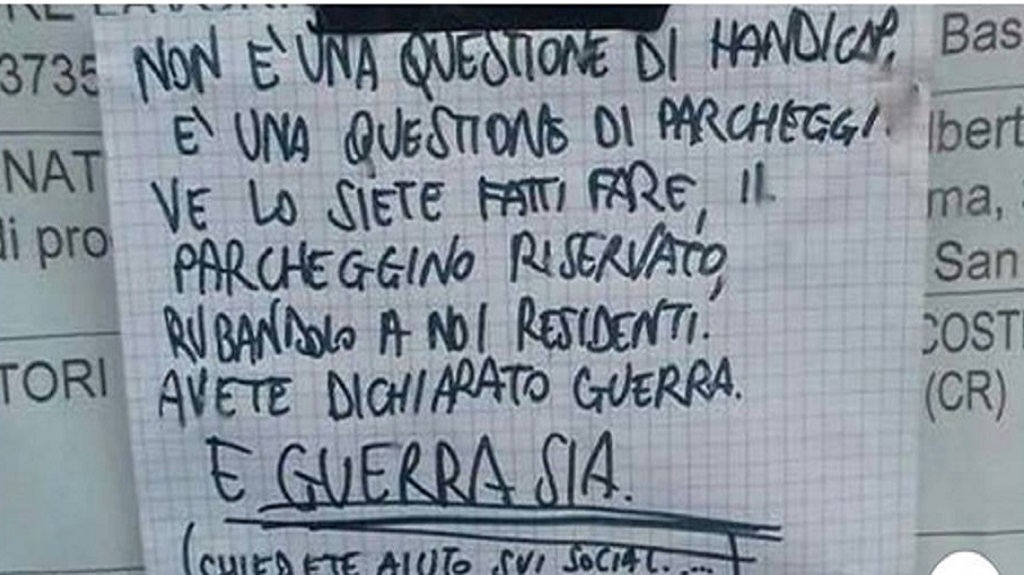 3735
NAT
di pro
TORI
NON E' UNA QUESTIONE DI HANDICAP,
E' UNA QUESTIONE DI PARCHEGGI.
VE LO SIETE FATTI FARE, IL
PARCHEGGINO RISERVATO,
RUBANDOLO A NOI RESIDENTI.
AVETE DICHIARATO GUERRA.
E GUERRA SIA.
(CHIEDETE AIUTO SUI SOCIAL....)
Bas
lbert
ma,
San
COSTI
(CR)